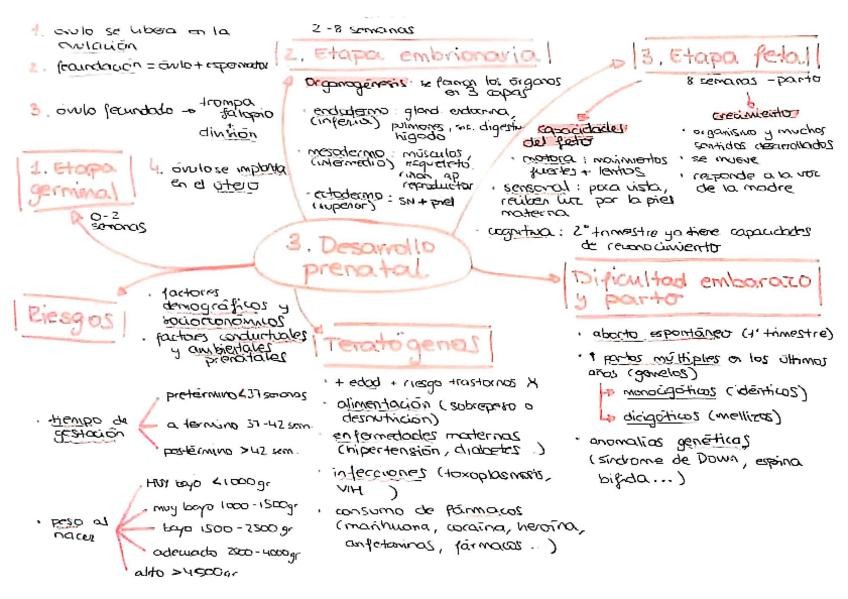 1. óvulo se libera en la
ovulación
2. fecundación = óvulo + espermatoz
3. óvulo fecundado → trompa
falopio
+
división
4. óvulo se implanta
en el útero
1. Etapa
germinal
0-2
semanas
2-8 semanas
2. Etapa embrionaria
Organogénesis: se forman los órganos
en 3 capas
· endodermo: gland. endocrina,
(inferior) pulmones, sis. digestivo
hígado
· mesodermo: músculos,
(intermedio) esqueleto,
riñon, ap
reproductor
· ectodermo: SN + piel
(superior)
3. Etapa fetal
8 semanas - parto
crecimiento
· organismo y muchos
sentidos desarrollados
· se mueve
· responde a la voz
de la madre
capacidades
del feto
· motora: movimientos
fuertes + lentos
· sensorial: poca vista,
reciben luz por la piel
materna
· cognitiva: 2º trimestre ya tiene capacidades
de reconocimiento
3. Desarrollo
prenatal
Riesgos
· factores
demográficos y
socioeconómicos
· factores conductuales
y ambientales
prenatales
· tiempo de
gestación
pretérmino <37 semanas
a termino 37-42 sem.
postérmino >42 sem.
· peso al
nacer
Muy bajo <1000gr
muy bajo 1000-1500gr
bajo 1500-2500gr
adecuado 2500-4000gr
alto >4500gr
Teratógenos
· + edad + riesgo trastornos X
· alimentación (sobrepeso o
desnutrición)
· enfermedades maternas
(hipertensión, diabetes..)
· infecciones (toxoplasmosis,
VIH )
· consumo de fármacos
(marihuana, cocaína, heroína,
anfetaminas, fármacos...)
Dificultad embarazo
y parto
· aborto espontáneo (1er trimestre)
· ↑ partos múltiples en los últimos
años (gemelos)
→ monocigóticos (idénticos)
→ dicigóticos (mellizos)
· anomalías genéticas
(síndrome de Down, espina
bífida...)